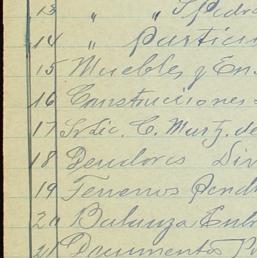 13 " " S. Pedro
14 " Particu
15 Muebles y En
16 Construcciones
17 Sr Lic. C. Martz. de
18 Deudores Div
19 Terrenos Pend
20 Balanza Entr
21 Documentos P